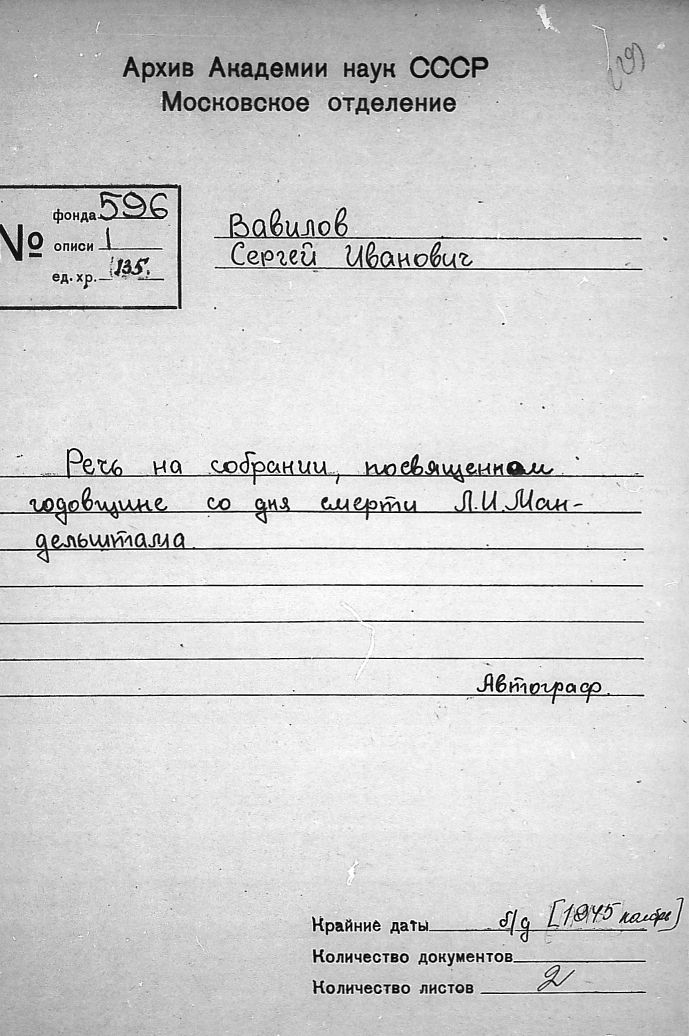 (19)
Архив Академии наук СССР
Московское отделение
№
фонда 596
описи 1
ед. хр. 135.
Вавилов
Сергей Иванович
Речь на собрании, посвященном
годовщине со дня смерти Л.И. Ман-
дельштама.
Автограф.
Крайние даты б/д [1945 ноябрь]
Количество документов
Количество листов 2